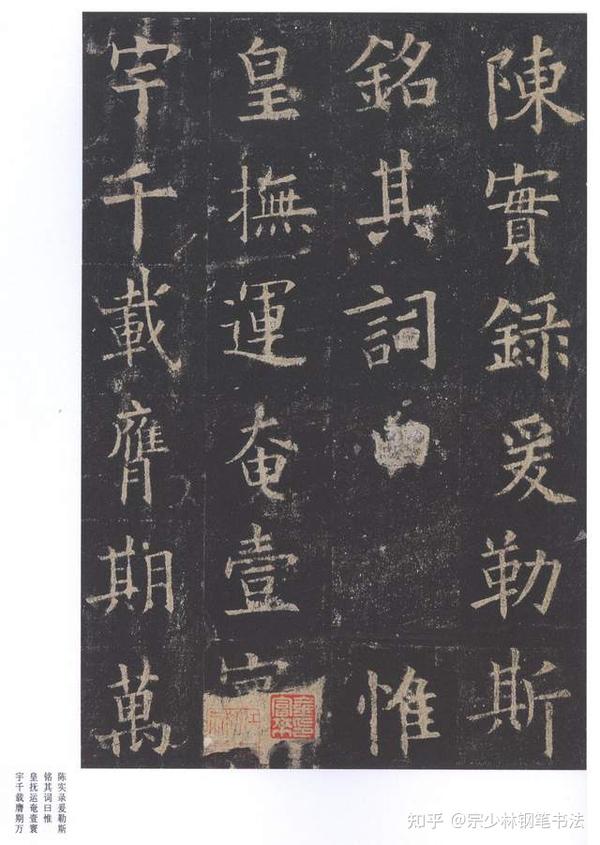 陳實錄爰勒斯
銘其詞曰惟
皇撫運奄壹寰
宇千載膺期萬
陈实录爰勒斯
铭其词曰惟
皇抚运奄壹寰
宇千载膺期万
知乎 @宗少林钢笔书法